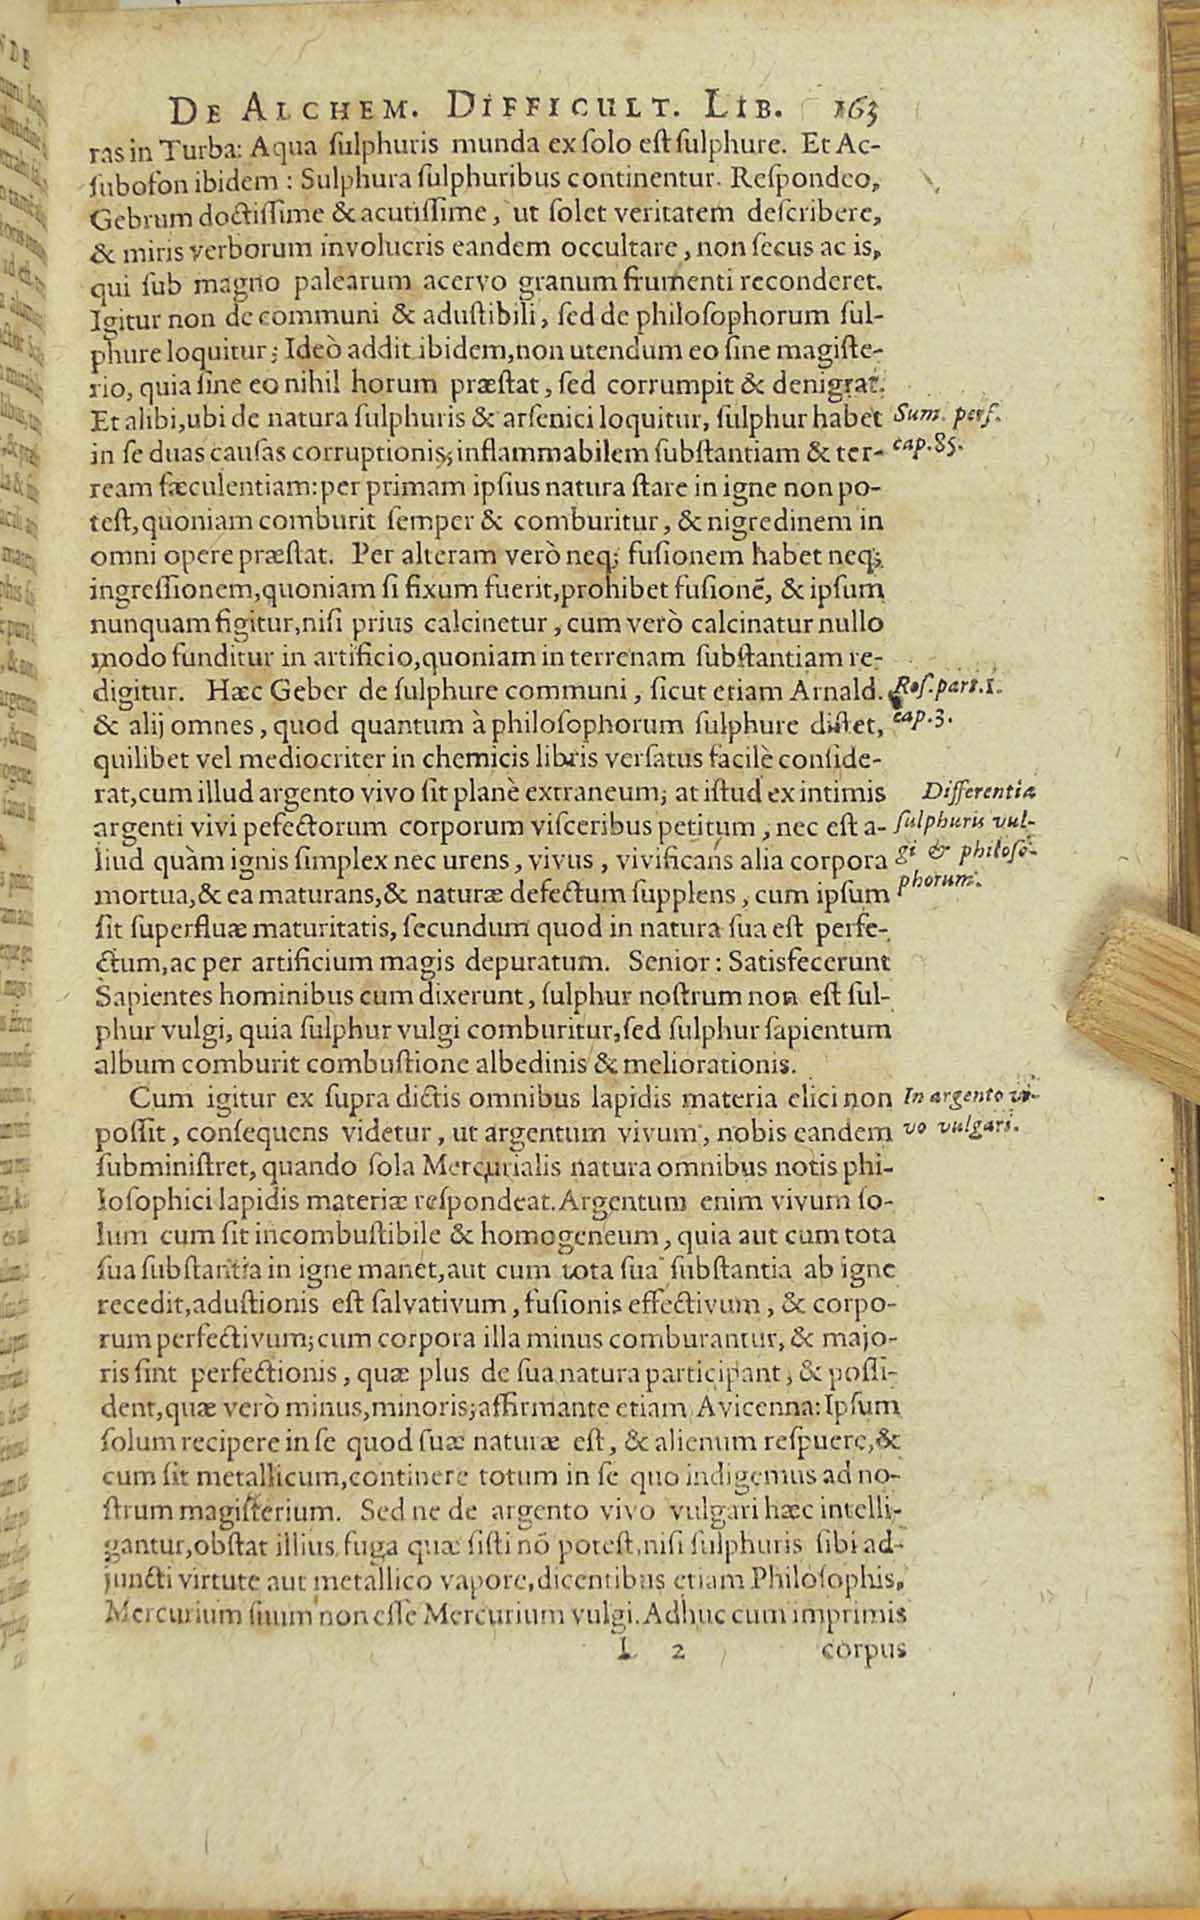 DE ALCHEM. DIFFICULT. LIB. 163
ras in Turba: Aqua ſulphuris munda ex ſolo eſt ſulphure. Et Ac-
ſubofon ibidem : Sulphura ſulphuribus continentur. Reſpondeo,
Gebrum doctiſſime & acutiſſime, ut ſolet veritatem deſcribere,
& miris verborum involucris eandem occultare, non ſecus ac is,
qui ſub magno palearum acervo granum frumenti reconderet.
Igitur non de communi & aduſtibili, ſed de philoſophorum ſul-
phure loquitur; Ideò addit ibidem, non utendum eo ſine magiſte-
rio, quia ſine eo nihil horum præſtat, ſed corrumpit & denigrat.
Et alibi, ubi de natura ſulphuris & arſenici loquitur, ſulphur habet
Sum. perf.
in ſe duas cauſas corruptionis; inflammabilem ſubſtantiam & ter-
cap. 85.
ream fæculentiam: per primam ipſius natura ſtare in igne non po-
teſt, quoniam comburit ſemper & comburitur, & nigredinem in
omni opere præſtat. Per alteram verò neq; fuſionem habet neq;
ingreſſionem, quoniam ſi fixum fuerit, prohibet fuſionē, & ipſum
nunquam figitur, niſi prius calcinetur, cum verò calcinatur nullo
modo funditur in artificio, quoniam in terrenam ſubſtantiam re-
digitur. Hæc Geber de ſulphure communi, ſicut etiam Arnald.
Roſ. part. 1.
& alij omnes, quod quantum à philoſophorum ſulphure diſtet,
cap. 3.
quilibet vel mediocriter in chemicis libris verſatus facilè conſide-
rat, cum illud argento vivo ſit planè extraneum; at iſtud ex intimis
Differentia
argenti vivi pefectorum corporum viſceribus petitum, nec eſt a-
ſulphuris vul-
liud quàm ignis ſimplex nec urens, vivus, vivificans alia corpora
gi & philoſo-
mortua, & ea maturans, & naturæ defectum ſupplens, cum ipſum
phorum.
ſit ſuperfluæ maturitatis, ſecundum quod in natura ſua eſt perfe-
ctum, ac per artificium magis depuratum. Senior: Satisfecerunt
Sapientes hominibus cum dixerunt, ſulphur noſtrum non eſt ſul-
phur vulgi, quia ſulphur vulgi comburitur, ſed ſulphur ſapientum
album comburit combuſtione albedinis & meliorationis.
Cum igitur ex ſupra dictis omnibus lapidis materia elici non
In argento vi-
poſſit, conſequens videtur, ut argentum vivum, nobis eandem
vo vulgari.
ſubminiſtret, quando ſola Mercurialis natura omnibus notis phi-
loſophici lapidis materiæ reſpondeat. Argentum enim vivum ſo-
lum cum ſit incombuſtibile & homogeneum, quia aut cum tota
ſua ſubſtantia in igne manet, aut cum tota ſua ſubſtantia ab igne
recedit, aduſtionis eſt ſalvativum, fuſionis effectivum, & corpo-
rum perfectivum; cum corpora illa minus comburantur, & majo-
ris ſint perfectionis, quæ plus de ſua natura participant, & poſſi-
dent, quæ verò minus, minoris; affirmante etiam Avicenna: Ipſum
ſolum recipere in ſe quod ſuæ naturæ eſt, & alienum reſpuere, &
cum ſit metallicum, continere totum in ſe quo indigemus ad no-
ſtrum magiſterium. Sed ne de argento vivo vulgari hæc intelli-
gantur, obſtat illius fuga quæ ſiſti nō poteſt, niſi ſulphuris ſibi ad-
juncti virtute aut metallico vapore, dicentibus etiam Philoſophis,
Mercurium ſuum non eſſe Mercurium vulgi. Adhuc cum imprimis
L 2 corpus